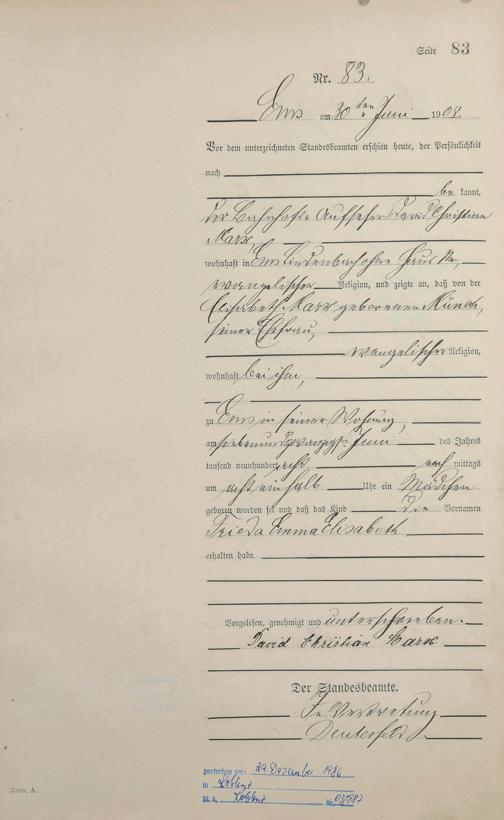 Seite 83
Nr. 83.
Ems am 30ten Juni 1908
Vor dem unterzeichneten Standesbeamten erschien heute, der Persönlichkeit
nach
be kannt,
der Bahnhofs-Aufseher David Christian
Marx,
wohnhaft in Ems Lindenbach ohne Haus No,
evangelischer Religion, und zeigte an, daß von der
Elisabeth Marx geborenen Münch,
seiner Ehefrau,
evangelischer Religion,
wohnhaft bei ihm,
zu Ems in seiner Wohnung,
am siebenundzwanzigsten Juni des Jahres
tausend neunhundert acht nach mittags
um acht ein halb Uhr ein Mädchen
geboren worden sei und daß das Kind die Vornamen
Frieda Emma Elisabeth
erhalten habe.
Vorgelesen, genehmigt und unterschrieben.
David Christian Marx
Der Standesbeamte.
In Vertretung
gestorben am: 29. Dezember 1986
in Koblenz
St. A. Koblenz Nr.
Form. A.